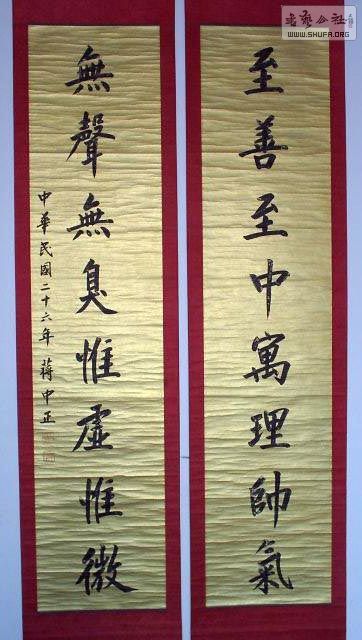 至善至中寓理帥氣
無聲無臭惟虛惟微
中華民國二十六年 蔣中正
WWW.SHUFA.ORG